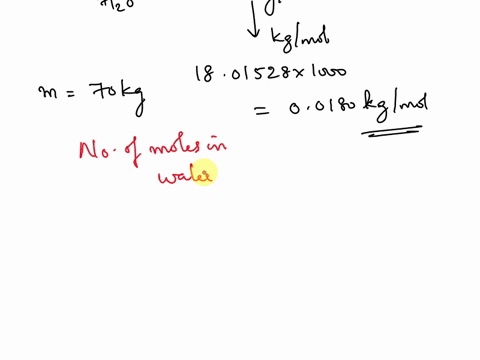 H₂O
kg/mol
m = 70kg
18.01528×1000
= 0.0180 kg/mol
No. of moles in
water